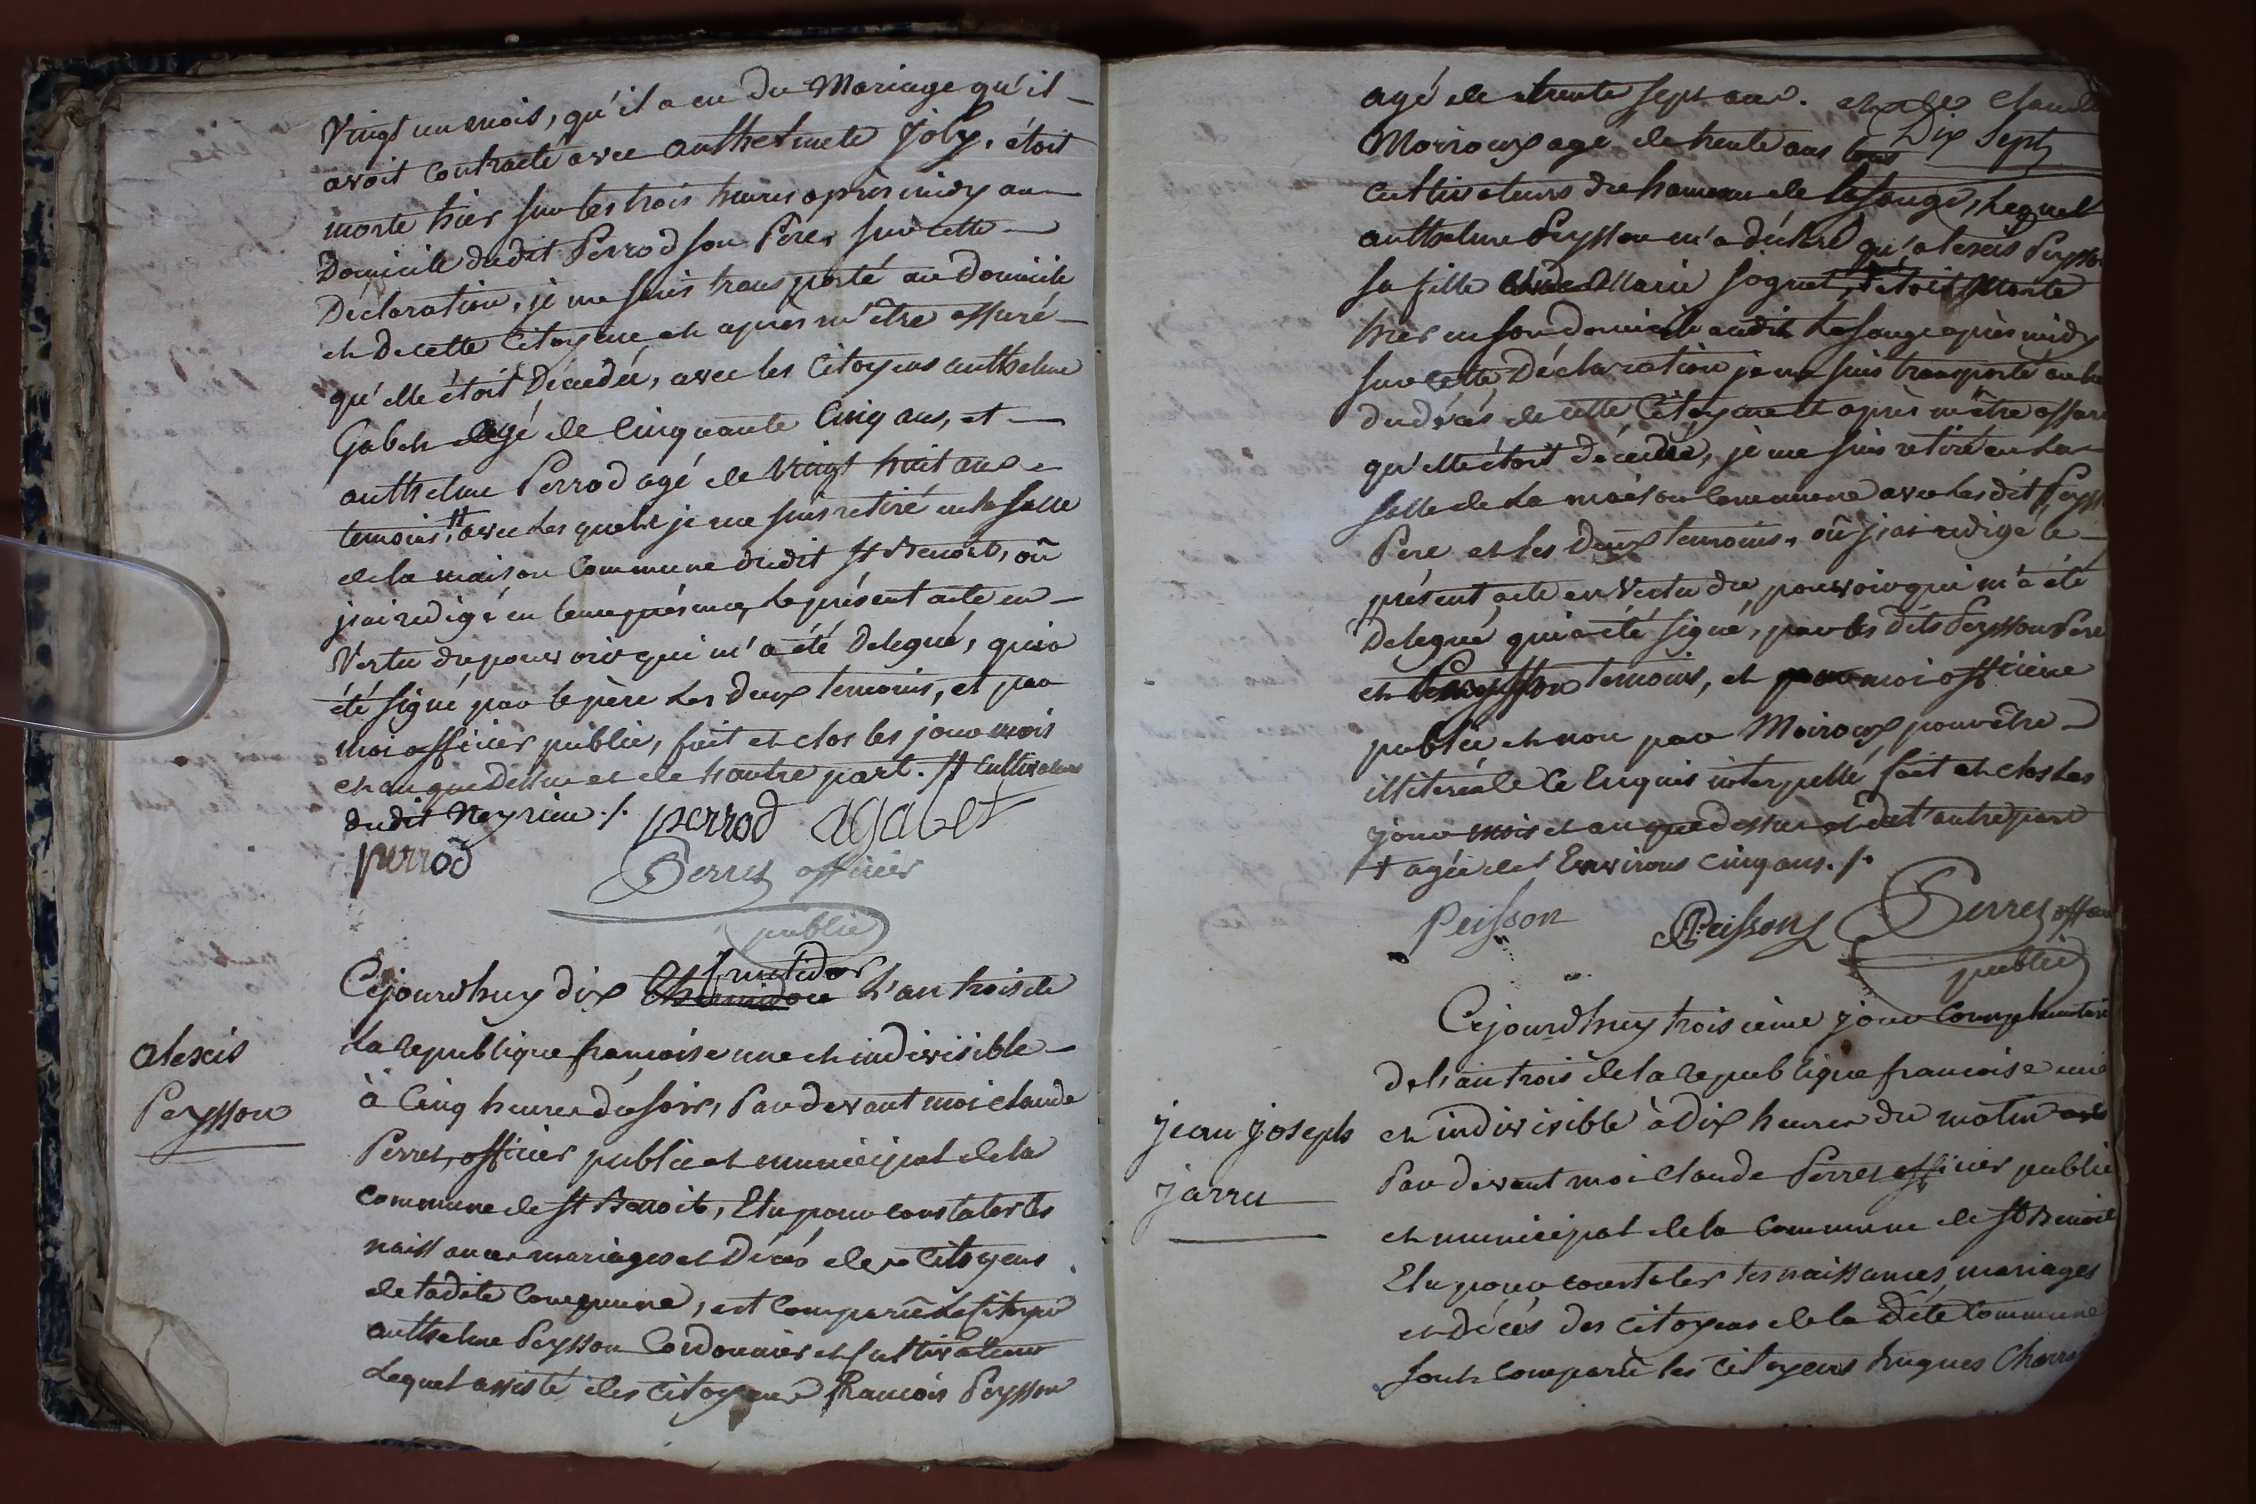 Vingt un mois, qu'il a eu du Mariage qu'il
avoit contracté avec anthelmete Joly, étoit
morte hier sur les trois heures après midy au
Domicile dudit Perrod son Père, sur cette
Déclaration, je me suis transporté au Domicile
et de cette Citoyene et après m'être assuré
qu'elle étoit Décédée, avec les Citoyens anthelme
Gabet agé de Cinquante Cinq ans, et
anthelme Perrod agé de Vingt huit ans
temoins, # avec les quels je me suis retiré en la salle
de la maison Commune dudit St Benoit, où
j'ai redigé en leur présence, le présent acte en
Vertu du pouvoir qui m'a été Delegué, qui a
été signé par le père les deux temoins, et par
moi officier public, fait et clos les jour mois
et an que dessus et de l'autre part. # Cultivateurs
dudit Neyrieu ./. perrod agabet
perrod
Perret officier
public
fructidor
Cejourdhuy dix l'an trois de
La republique françoise une et indivisible
alexis
Peysson
à Cinq heures du soir, Par devant moi claude
Perret, officier public et municipal de la
commune de St Benoit, Elu pour constater les
naissances mariages et Décés des Citoyens
de ladite Commune, est Comparu le Citoyen
anthelme Peysson Cordonnier et Cultivateur
Lequel assisté des Citoyens François Peysson
agé de trente sept ans. et de Claude
Dix Sept
Moiroux agé de trente ans tous
cultivateurs du hameau de lesauge, Lequel
anthelme Peysson m'a déclaré qu'alexis Peysson
sa fille et de Marie Jognet, # étoit Morte
hier en son domicile audit Lesauge après midy
sur cette Déclaration je me suis transporté au lieu
du décés de cette Citoyene et après m'être assuré
qu'elle étoit décédée, je me suis retiré en la
salle de La maison Commune avec lesdit Peysson
Père et les deux temoins, où j'ai redigé le
présent acte en Vertu du pouvoir qui m'a été
Delegué qui a été signé, par les dits Peysson Père
et Peysson temoins, et par moi officier
public et non par Moiroux pour être
illiteré de ce Enquis interpellé fait et clos les
jour mois et an que dessus et de l'autre part
# agée de Environs cinq ans. /.
Peisson Peisson Perret offier
public
Cejourdhuy troisieme jour Complementaire
de l'an trois de la republique françoise une
jean joseph
jarru
et indivisible à dix heures du matin
Par devant moi claude Perret officier public
et municipal de la Commune de St Benoit
Elu pour constater les naissances, mariages
et Décés des Citoyens de la dite Commune
sont comparu les Citoyens hugues